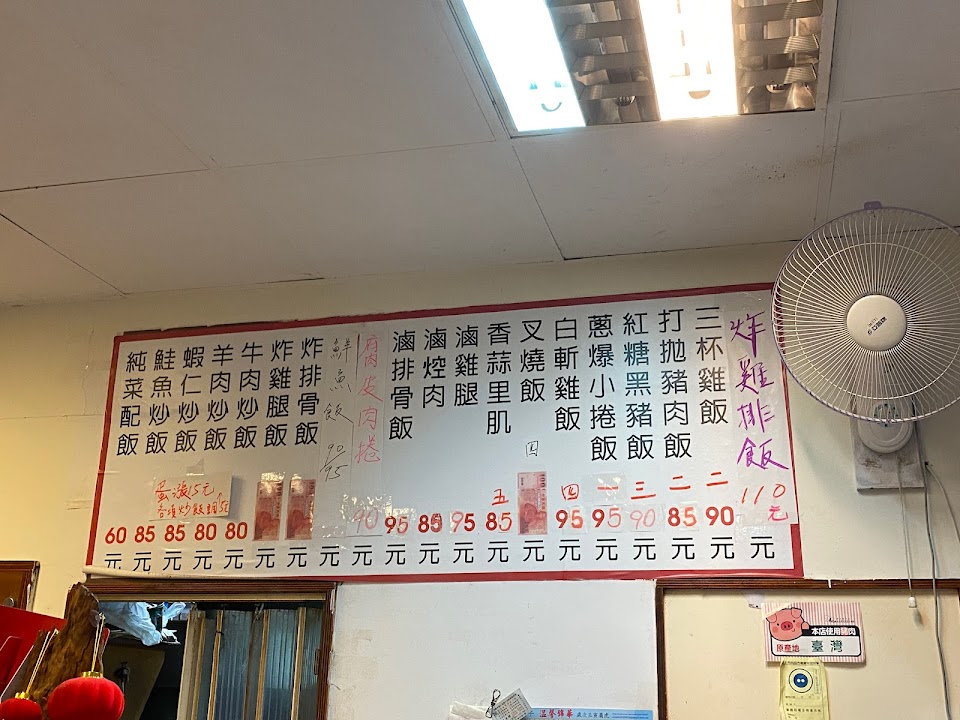 炸雞排飯 110元
三杯雞飯 二 90元
打拋豬肉飯 二 85元
紅糖黑豬飯 三 90元
蔥爆小捲飯 一 95元
白斬雞飯 四 95元
叉燒飯 四 元
香蒜里肌 五 85元
滷雞腿 95元
滷焢肉 85元
滷排骨飯 95元
肉捲 90元
鮮魚飯 90 95元
炸排骨飯 元
炸雞腿飯 元
牛肉炒飯 80元
羊肉炒飯 80元
蝦仁炒飯 85元
鮭魚炒飯 85元
純菜配飯 60元
各項炒飯
本店使用豬肉
原產地 臺灣